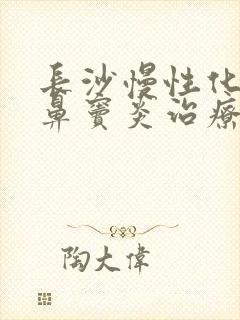 長沙慢性化
鼻竇炎治療
陶大偉